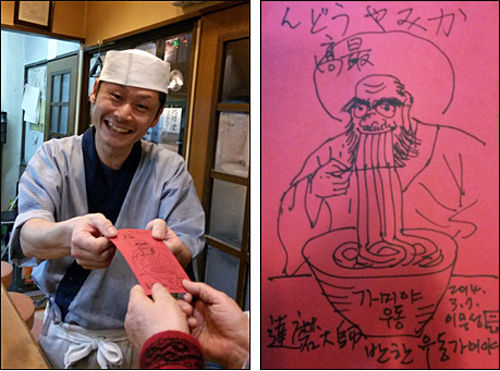 かみやうどん
最高
가미야
우동
2014.
3.7.
이무성
達磨大師
반한 우동가미야